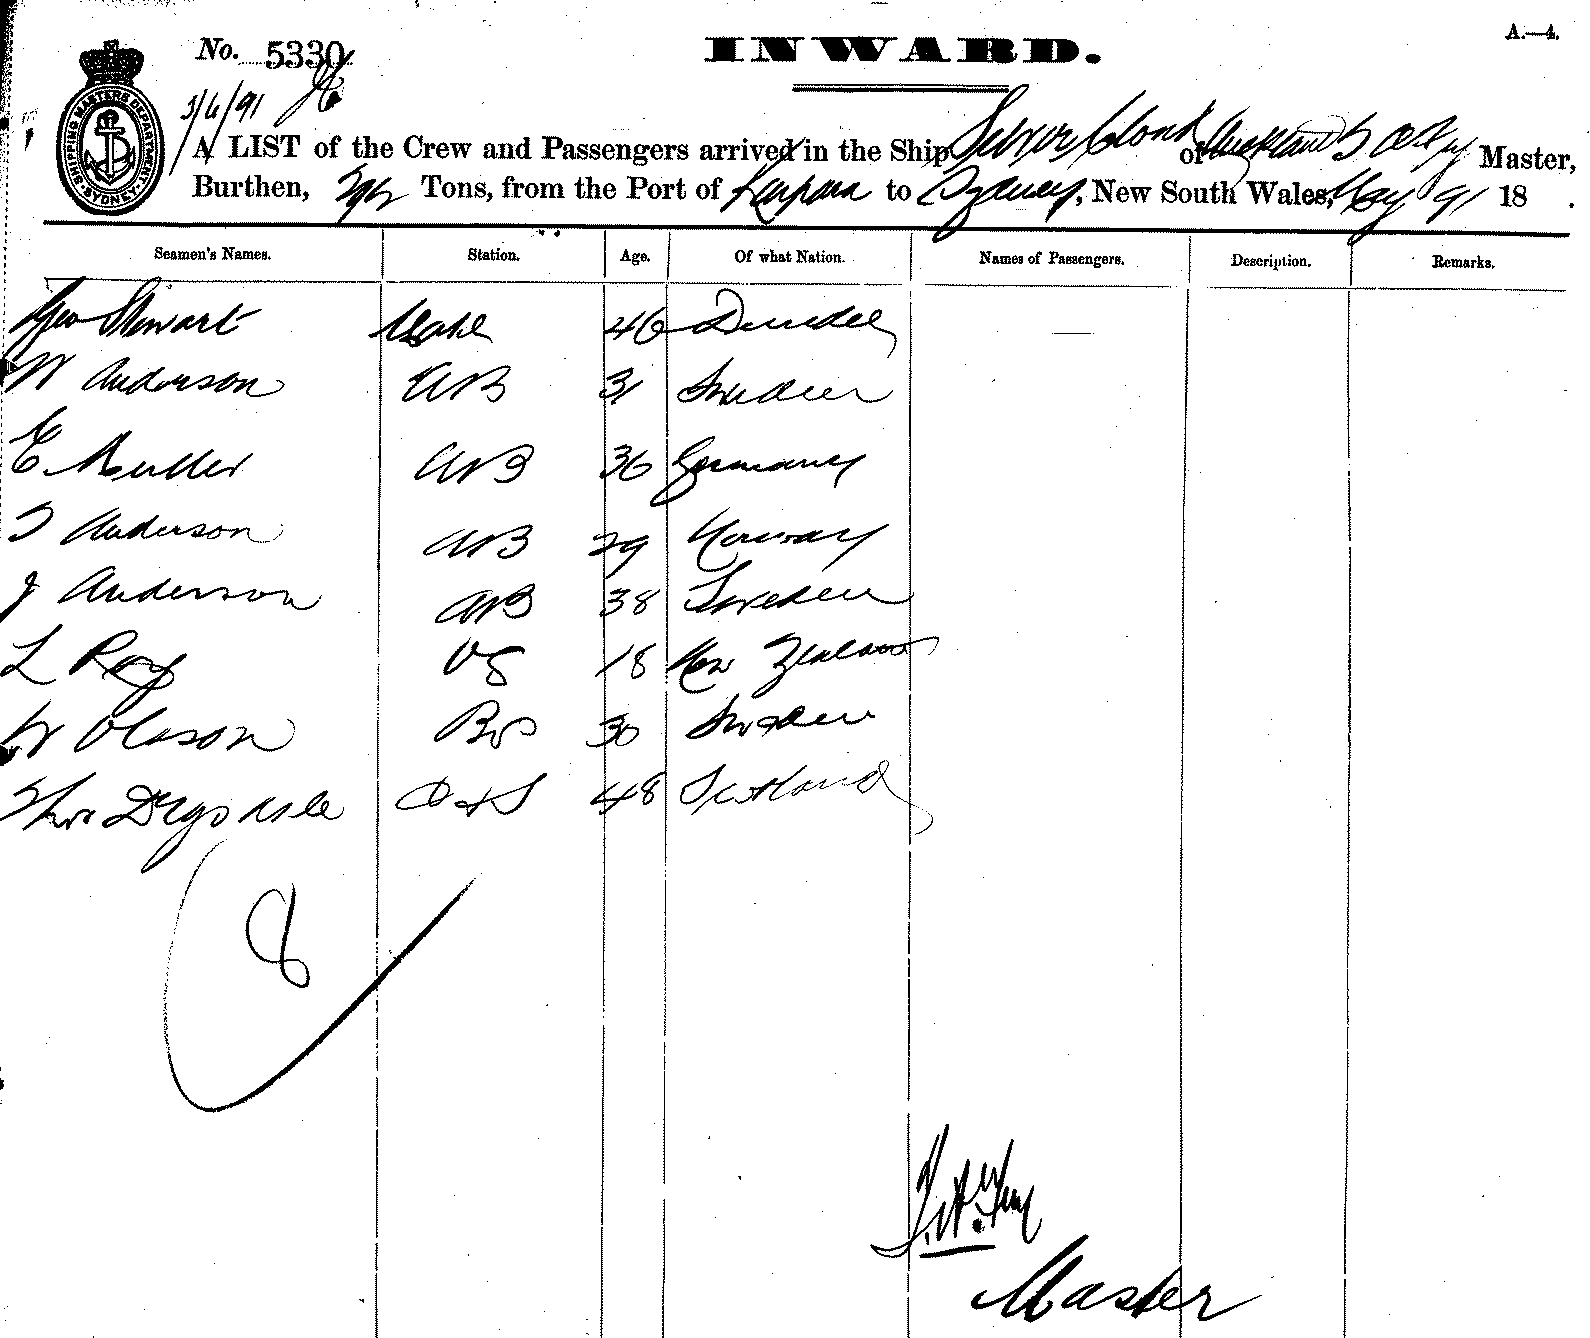 A.—4.
No. 5330
INWARD.
SHIPPING MASTERS DEPARTMENT SYDNEY
1/6/91
A LIST of the Crew and Passengers arrived in the Ship Silver Cloud of Auckland Master,
Burthen, Tons, from the Port of Kaipara to Sydney, New South Wales, May 91 18 .
Seamen's Names. Station. Age. Of what Nation. Names of Passengers. Description. Remarks.
Geo Stewart Mate 46 Dundee —
W Anderson AB 31 Sweden
E Muller AB 36 Germany
T Anderson AB 29 Norway
J Anderson AB 38 Sweden
L Roy OS 18 New Zealand
W Olsson 30 Sweden
Thos Drysdale C & S 48 Scotland
8
Master